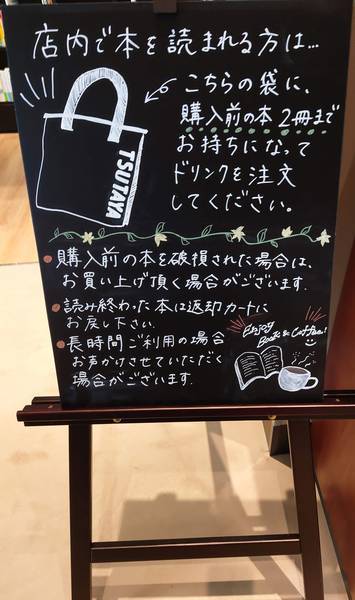 店内で本を読まれる方は...
こちらの袋に、
購入前の本 2冊まで
お持ちになって
ドリンクを注文
してください。
TSUTAYA
購入前の本を破損された場合は、
お買い上げ頂く場合がございます.
読み終わった本は返却カートに
お戻し下さい.
長時間ご利用の場合
お声かけさせていただく
場合がございます.
Enjoy
Book & Coffee!